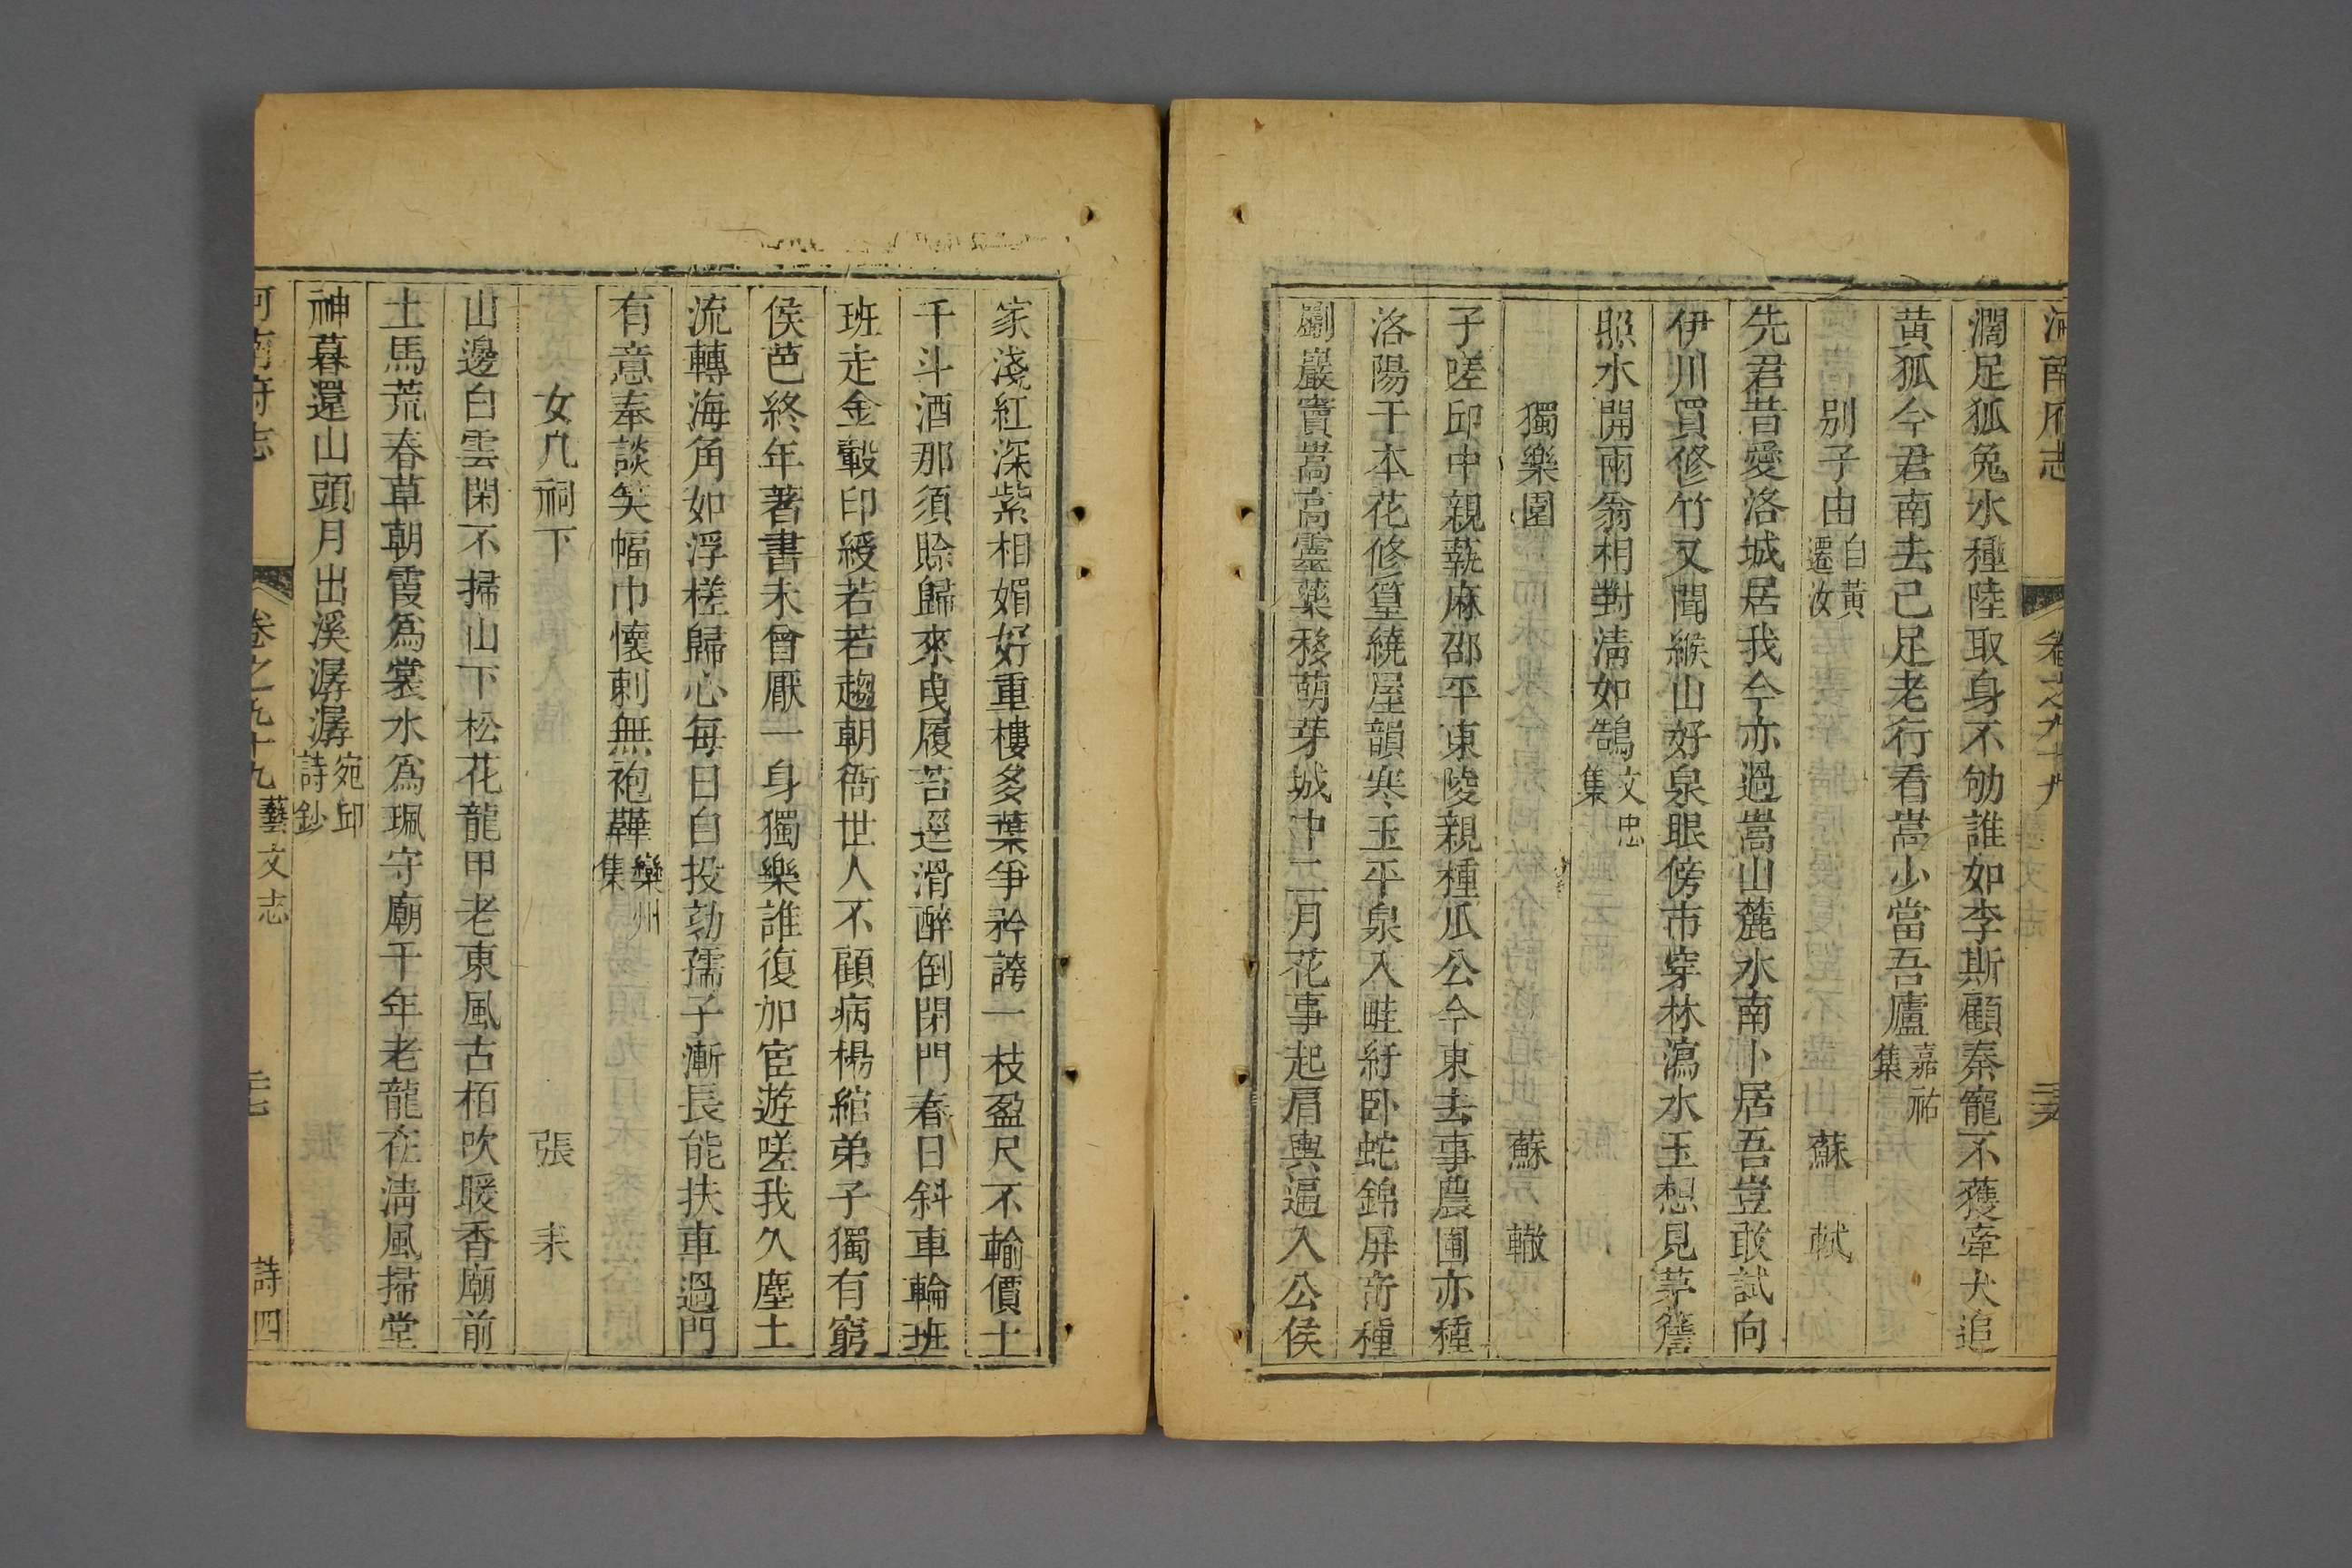 河南府志 卷之九十九 三六
濶足狐兔水種陸取身不劬誰如李斯顧秦寵不獲牽犬追
黃狐今君南去已足老行看嵩少當吾廬嘉祐集
別子由自黃遷汝 蘇 軾
先君昔愛洛城居我今亦過嵩山麓水南卜居吾豈敢試向
伊川買修竹又聞緱山好泉眼傍市穿林瀉水玉想見茅簷
照水開兩翁相對淸如鵠文忠集
獨樂園 蘇 轍
子嗟邱中親蓺麻邵平東陵親種瓜公今東去事農圃亦種
洛陽千本花修篁繞屋韻寒玉平泉入畦紆臥蛇錦屏奇種
劚巖竇嵩高靈藥移萌芽城中二月花事起肩輿逼入公侯
家淺紅深紫相媚好重樓多葉爭矜誇一枝盈尺不輸價土
千斗酒那須賒歸來曳履苔逕滑醉倒閉門春日斜車輪班
班走金轂印綬若若趨朝衙世人不顧病楊綰弟子獨有窮
侯芭終年著書未曾厭一身獨樂誰復加宦遊嗟我久塵土
流轉海角如浮槎歸心每日自投劾孺子漸長能扶車過門
有意奉談笑幅巾懷刺無袍鞾欒州集
女几祠下 張 耒
山邊白雲閑不掃山下松花龍甲老東風古栢吹暖香廟前
土馬荒春草朝霞爲裳水爲珮守廟千年老龍在淸風掃堂
神暮還山頭月出溪潺潺宛邱詩鈔
河南府志 卷之九十九 藝文志 三七 詩四